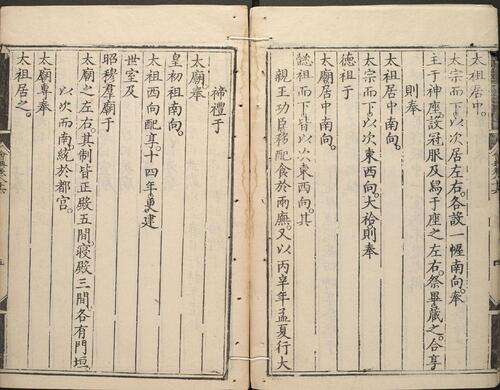 太祖居中。
太宗而下以次居左右。各設一幄南向。奉
主于神座。設冠服及舄于座之左右。祭畢藏之。合享
則奉
太祖居中南向。
太宗而下。以次東西向。大祫則奉
德祖于
太廟居中南向。
懿祖而下皆以次東西向。其
親王功臣移配食於兩廡。又以丙辛年孟夏行大
禘禮于
太廟。奉
皇初祖南向。
太祖西向配享。十四年更建
世室及
昭穆羣廟于
太廟之左右。其制皆正殿五間。寢殿三間。各有門垣。
以次而南統於都宮。
太廟專奉
太祖居之。